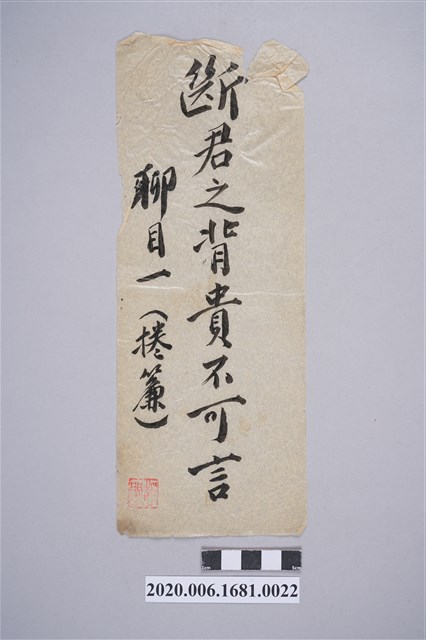 斷君之背貴不可言
聊目一(捲簾)
2020.006.1681.0022